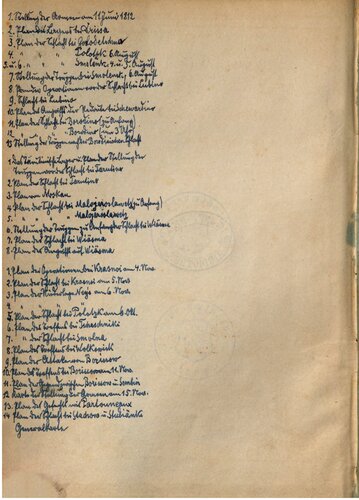 1. Stellung der Armeen am 11 Juni 1812
2. Plan des Lagers bei Drissa
3. Plan der Schlacht bei Gorodetschna
4. " " " " Polotzk 6. August
5. u. 6. " " " Smolensk, 4. u. 5. August
7. Stellung der Truppen bei Smolensk, 6. August
8. Operationen vor der Schlacht bei Lubino
9. Schlacht bei Lubino
10. Plan des Angriffs der Redute bei Schewardino
11. Plan der Schlacht bei Borodino (zu Anfang)
12. " " " " Borodino (um 3 Uhr)
13 Stellung der Truppen nach der Schlacht
1. Das Tarutinosche Lager u. Plan der Stellung der
Truppen vor der Schlacht bei Tarutino
2. Plan der Schlacht bei Tarutino
3. Plan von Moskau
4. Plan der Schlacht bei Malojaroslawetz (zu Anfang)
5. " " " " Malojaroslawetz
6. Stellung der Truppen zu Anfang der Schlacht bei Wiäsma
7. Plan der Schlacht bei Wiäsma
8. Plan des Angriffs auf Wiäsma
1. Plan der Operationen bei Krasnoi am 4. Nov.
2. Plan der Schlacht bei Krasnoi am 5. Nov.
3. Plan der Niederlage Neys am 6. Nov.
4. "
5. Plan der Schlacht bei Polotzk am 6. Okt.
6. Plan des Treffens bei Tschaschniki
7. " der Schlacht bei Smolna
8. Plan des Treffens bei Wolkowisk
9. Plan der Attake von Borisow
10. Plan des Treffens bei Borissow am 11. Nov.
11. Plan der Gegend zwischen Borisow u. Sembin
12. Karte der Stellung der Armeen am 15. Nov.
13. Plan des Gefechts mit Partouneaux
14. Plan der Schlacht bei Stachow u. Studianka
Generalkarte